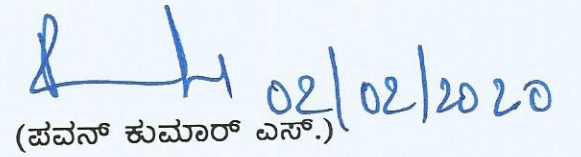 02/02/2020
(ಪವನ್ ಕುಮಾರ್ ಎಸ್.)